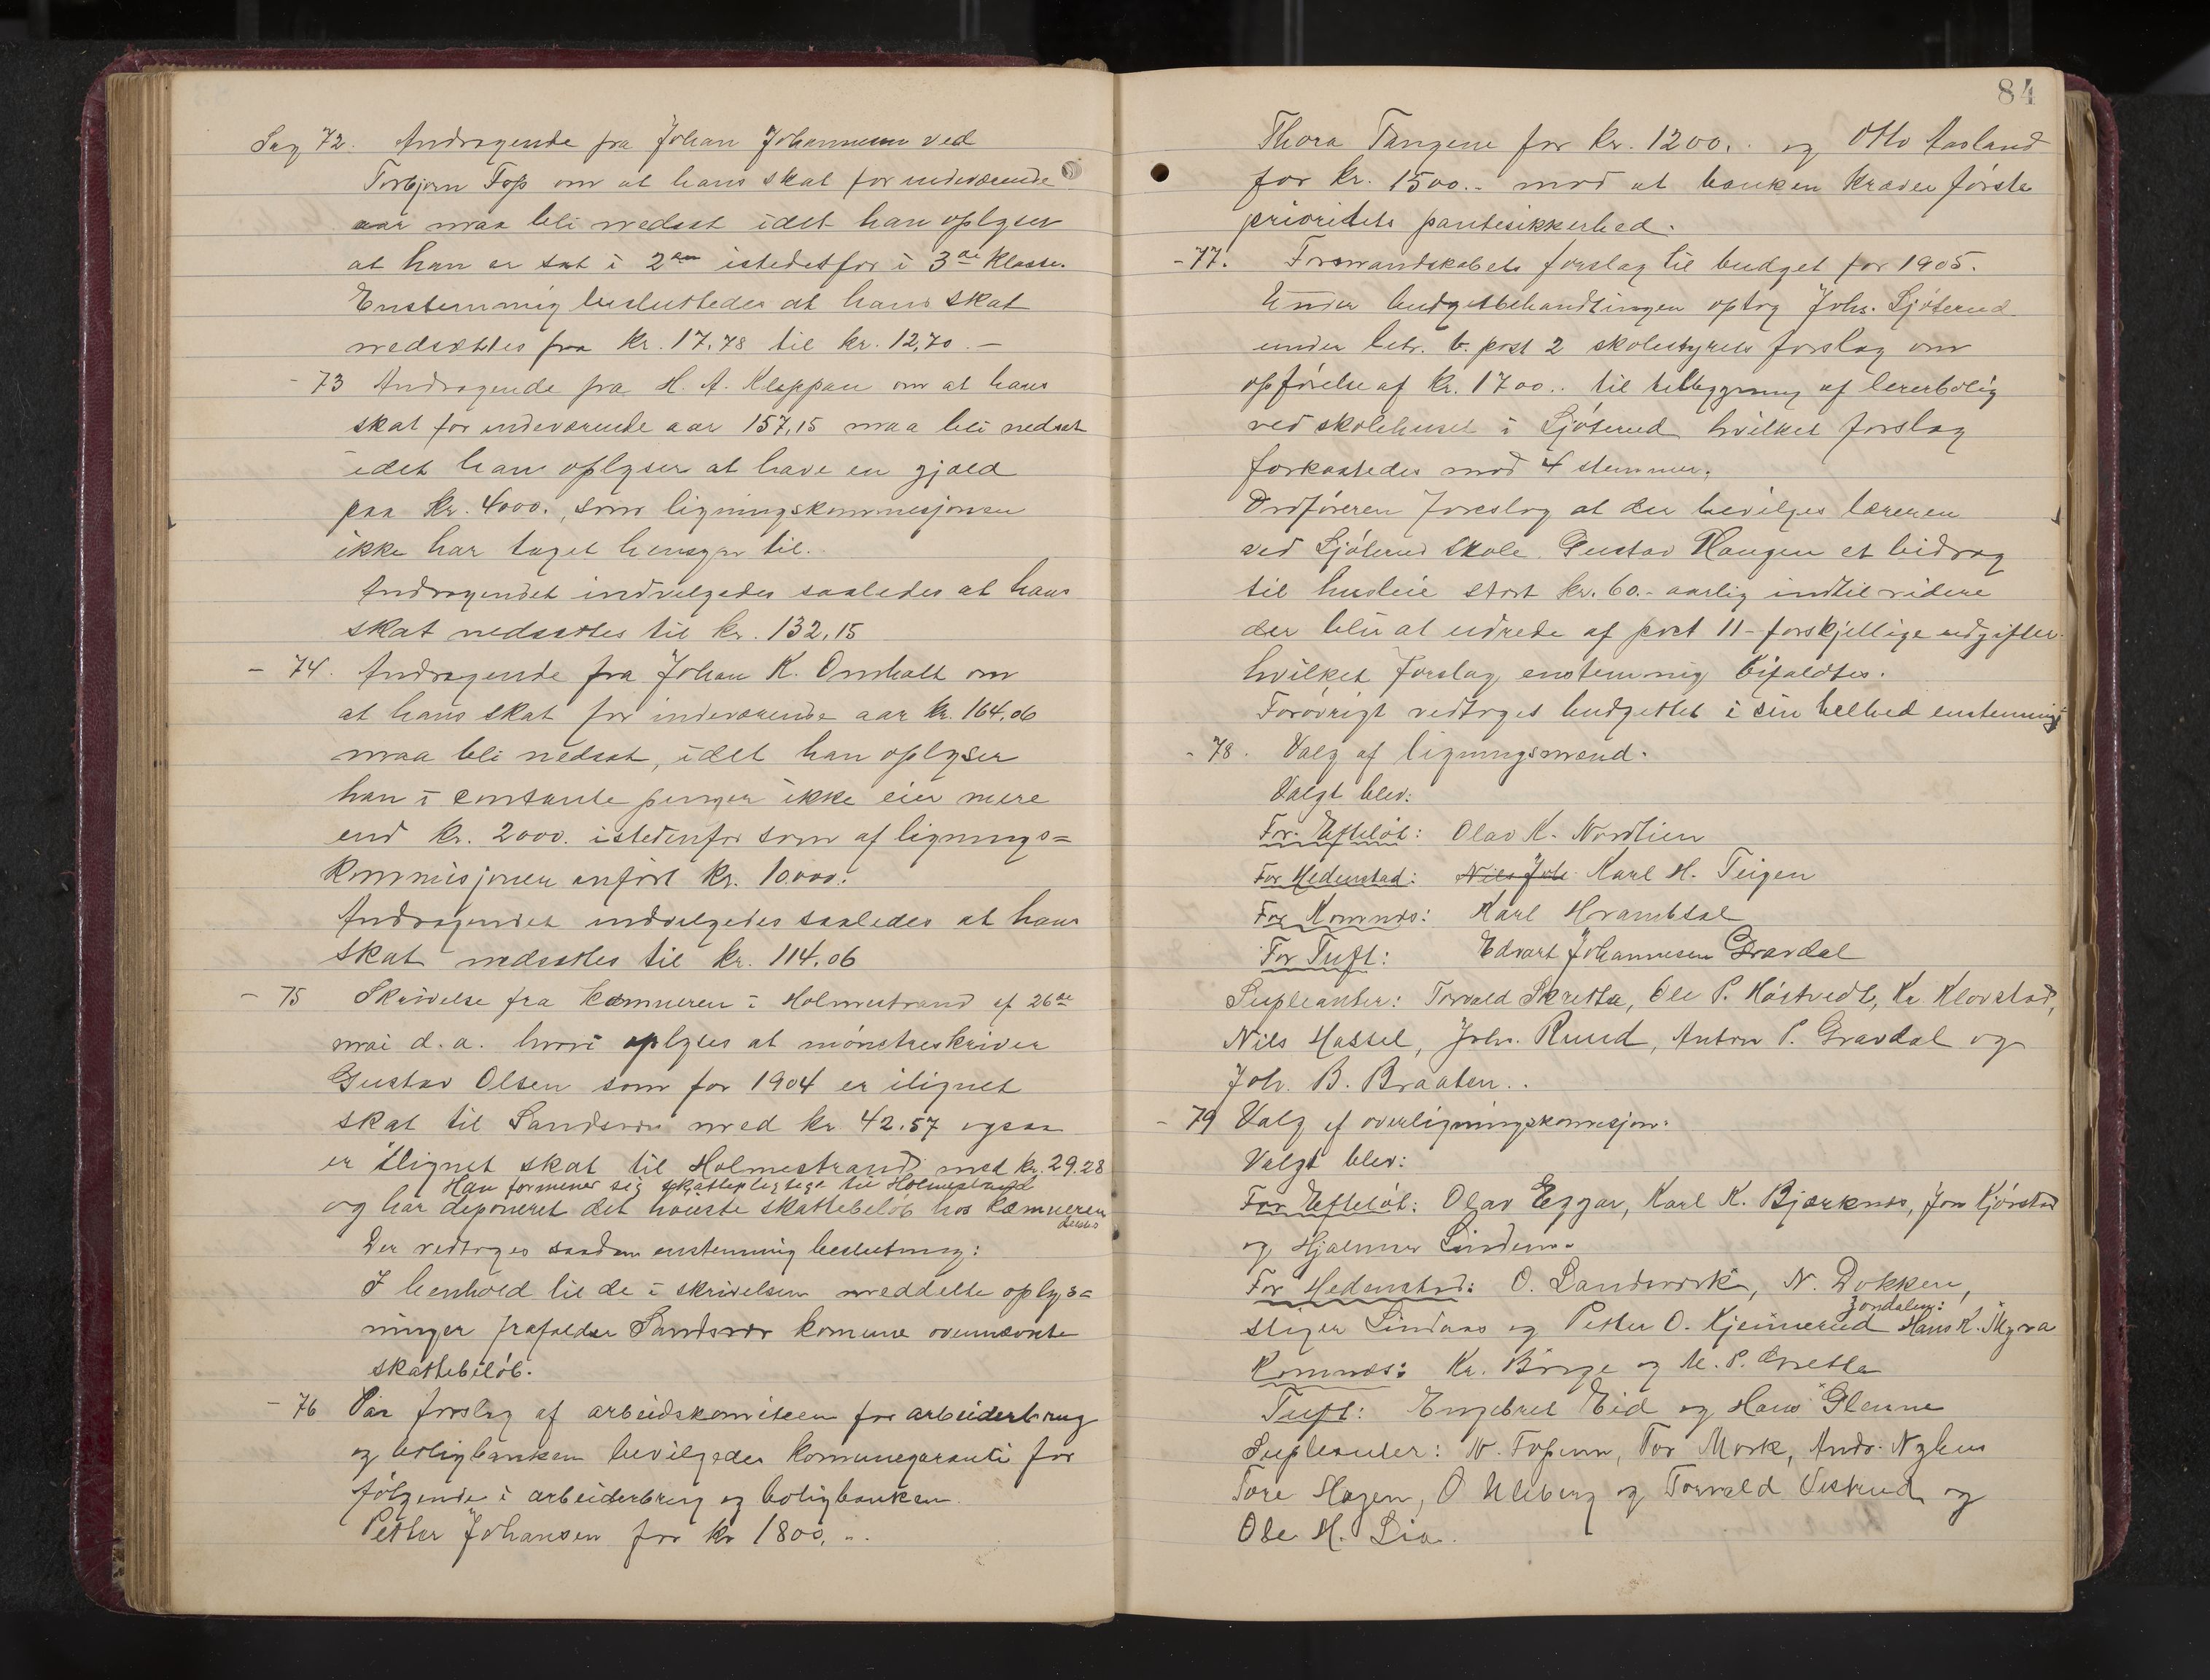 Sag 72. Andragende fra Johan Johannesen ved
Torbjørn Fos om at hans skat for indeværende
aar maa bli nedsat idet han oplyser
at han er sat i 2den istedetfor i 3de klasse.
Enstemmig besluttedes at hans skat
nedsættes fra kr. 17,78 til kr. 12,70.-
- 73 Andragende fra H. A. Kloppan om at hans
skat for indeværende aar 157,15 maa bli nedsat
idet han oplyser at have en gjæld
paa kr. 4000., som ligningskommisjonen
ikke har taget hensyn til.
Andragendet indvilgedes saaledes at hans
skat nedsættes til kr. 132,15
- 74. Andragende fra Johan K. Omholt om
at hans skat for indeværende aar kr. 164,06
maa bli nedsat, idet han oplyser
han i contante penger ikke eier mere
end kr. 2000. istedenfor som af lignings=
kommisjonen anført kr. 10.000.
Andragendet indvilgedes saaledes at hans
skat nedsættes til kr. 114,06
- 75 Skrivelse fra kæmneren i Holmestrand af 26de
mai d. a. hvori oplyses at mønstreskriver
Gustav Olsen som for 1904 er ilignet
skat til Sandsvær med kr. 42.57 ogsaa
er ilignet skat til Holmestrand med kr. 29.28
Han formener sig skattepligtige til Holmestrand
og har deponeret det høieste skattebeløb hos kæmneren
dersts
Der vedtoges saadan enstemmig beslutning:
I henhold til de i skrivelsen meddelte oplys=
ninger frafalder Sandsvær komune ovennævnte
skattebeløb.
- 76 Paa forslag af arbeidskomiteen for arbeiderbrug
og boligbanken bevilgedes komunegaranti for
følgende i arbeiderbrug og boligbanken.
Petter Johansen for kr 1800. ..
84
Thora Tangene for kr. 1200.. og Otto Aasland
for kr. 1500.- mod at banken kræver første
prioritets pantesikkerhed.
- 77. Formandskabets forslag til budget for 1905.
Under budgetbehandlingen optog Johs. Sjøterud
under litr. b. post 2 skolestyrets forslag om
opførelse af kr. 1700.. til tilbygning af lærerbolig
ved skolehuset i Sjøterud hvilket forslag
forkastedes mod 4 stemmer.
Ordføreren foreslog at der bevilges læreren
ved Sjøterud skole Gustav Haugen et bidrag
til husleie stort kr. 60.- aarlig indtil videre
der blir at udrede af post 11 - forskjellige udgifter.
hvilket forslag enstemmig bifaldtes.
Forøvrigt vedtoges budgettet i sin helhed enstemmig
- 78. Valg af ligningsmænd.
Valgt blev:
For Efteløt: Olav K. Nordlien
For Hedenstad: Nils Joh Karl H. Teigen
For Komnæs: Karl Hvambsal
For Tuft: Edvart Johannesen Gravdal
Supleanter: Torvald Skretta, Ole P. Høstvedt, Kr Klovstad,
Nils Hassel, Johs. Ruud, Anton P. Gravdal og
Joh. B. Braaten..
- 79 Valg af overligningskomisjon:
Valgt blev:
For Efteløt: Olav Eggar, Karl K. Bjærknes, Jon Kjørstad
og Hjalmer Lindem.
For Hedenstad: O. Landsverk, N. Dokken,
Jondalen:
stiger Lindaas og Petter O. Kjennerud Hans K. Myra
Komnæs: Kr. Børge og M. P.
Tuft: Engebret Eid og Hans Glenne
Supleanter: N. Fossum, Tor Mork, Andr. Nyhus
Tore Hagen, O Ulleberg og Torvald Vestrud og
Ole H. Lia.